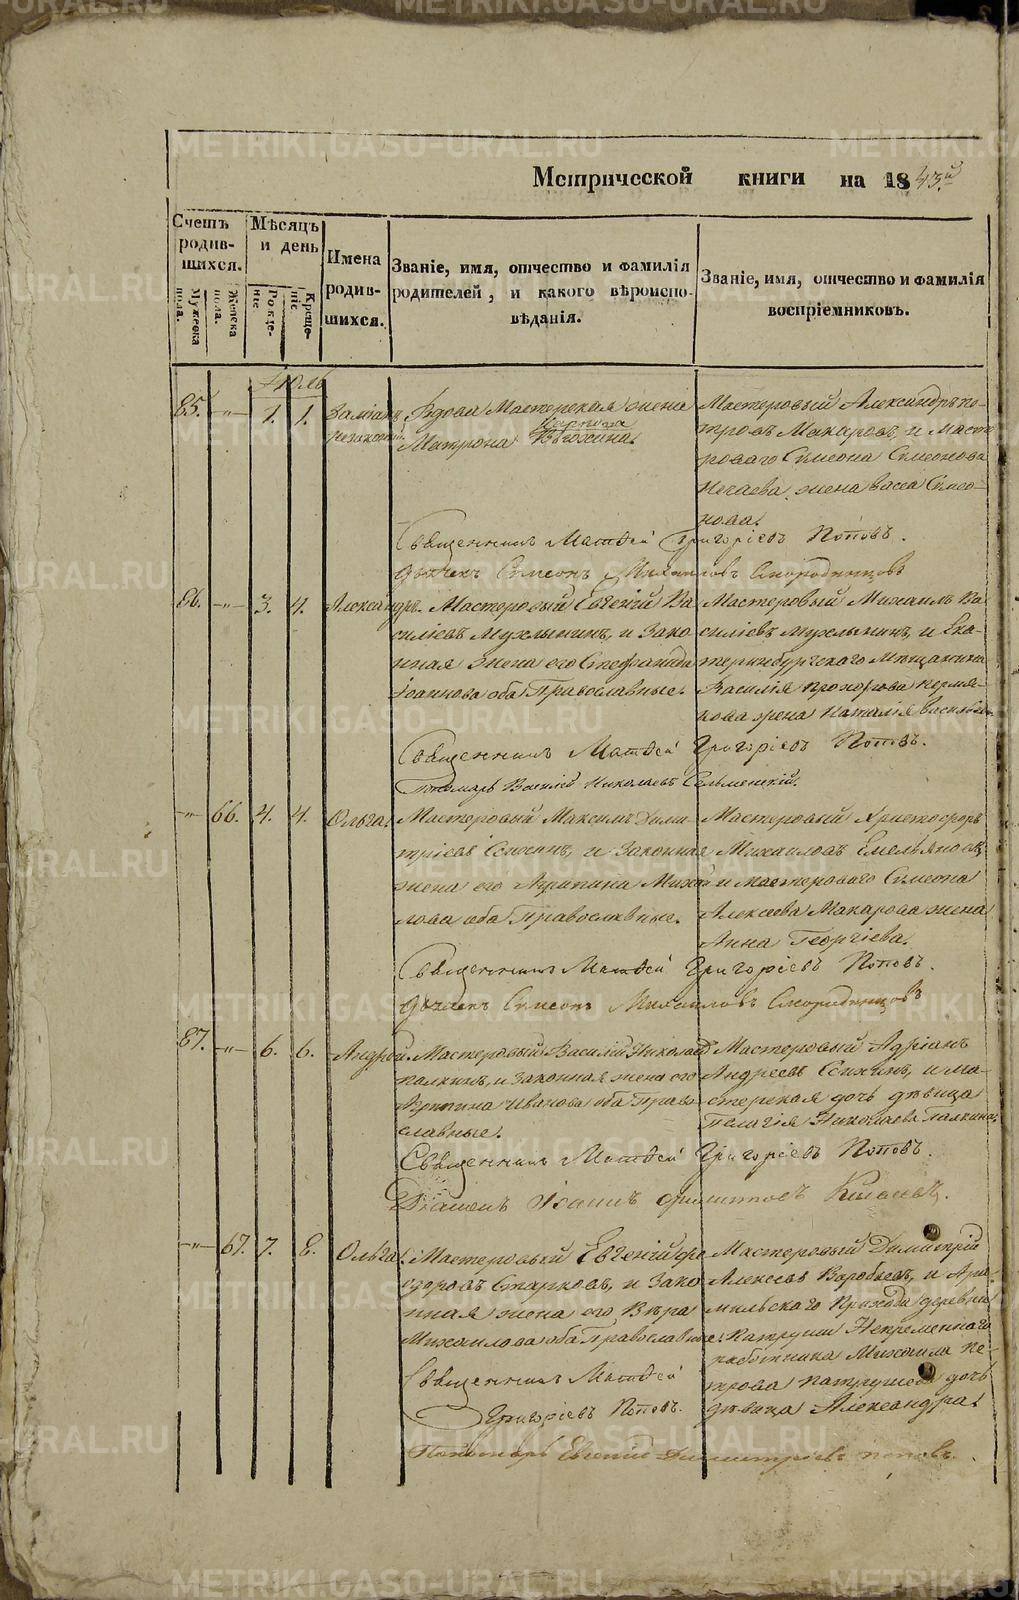 Метрической книги на 1843й
Счетъ родившихся.
Мѣсяцъ и день
Имена родившихся.
Званіе, имя, отчество и фамилія родителей, и какого вѣроисповѣданія.
Званіе, имя, отчество и фамилія воспріемниковъ.
Мужеска пола.
Женска пола.
Рожденіе
Крещеніе
Іюль
85. -"- 1. 1.
Вдова Мастерская жена
Матрона
Мастеровый Александръ Пе-
тровъ Макаровъ, и Масте
роваго Симеона Симеонова
Нечаева жена Васса Симео-
нова.
Священникъ Матѳей Григоріевъ Поповъ.
Дьячекъ Симеонъ Михаиловъ Смородинцовъ
86. -"- 3. 4. Александръ.
Мастеровый Евгеній Ва
силіевъ Мухлынинъ, и зако
нная жена его Стефанида
Іоаннова оба Православные.
Мастеровый Михаилъ Ва
силіевъ Мухлынинъ, и Ека-
теринбургскаго Мѣщанина
Василія Прохорова Пермя-
кова жена Наталія Васильева.
Священникъ Матѳей Григоріевъ Поповъ.
Пономарь Василій Николаевъ Сельменскій.
-"- 66. 4. 4. Ольга.
Мастеровый Максимъ Дими
тріевъ и законная
жена его Агрипина Михаи
лова оба Православные.
Мастеровый Христофоръ
Михаиловъ Емельяновъ,
и мастероваго Симеона
Алексеева Макарова жена
Анна Георгіева.
Священникъ Матѳей Григоріевъ Поповъ.
Дьячекъ Симеонъ Михаиловъ Смородинцовъ
87. -"- 6. 6. Андрей.
Мастеровый Василій Николаев
Палкинъ, и законная жена его
Агрипина Иванова оба Право
славные.
Мастеровый Адріанъ
Андреевъ и ма-
стерская дочь дѣвица
Пелагія Николаева Палкина.
Священникъ Матѳей Григоріевъ Поповъ.
Діаконъ Іоаннъ
-"- 67. 7. 8. Ольга.
Мастеровый Евгеній Фе
одоровъ Старковъ, и зако
нная жена его Вѣра
Михаилова оба Православные.
Мастеровый Димитрій
Алексеевъ Воробьевъ, и Ара-
мильскаго Прихода деревни
Патруши Непременнаго
работника Михаила Пе-
трова Патрушева дочь
дѣвица Александра.
Священникъ Матѳей
Григоріевъ Поповъ.
Пономарь Евгеній Димитріевъ Поповъ.